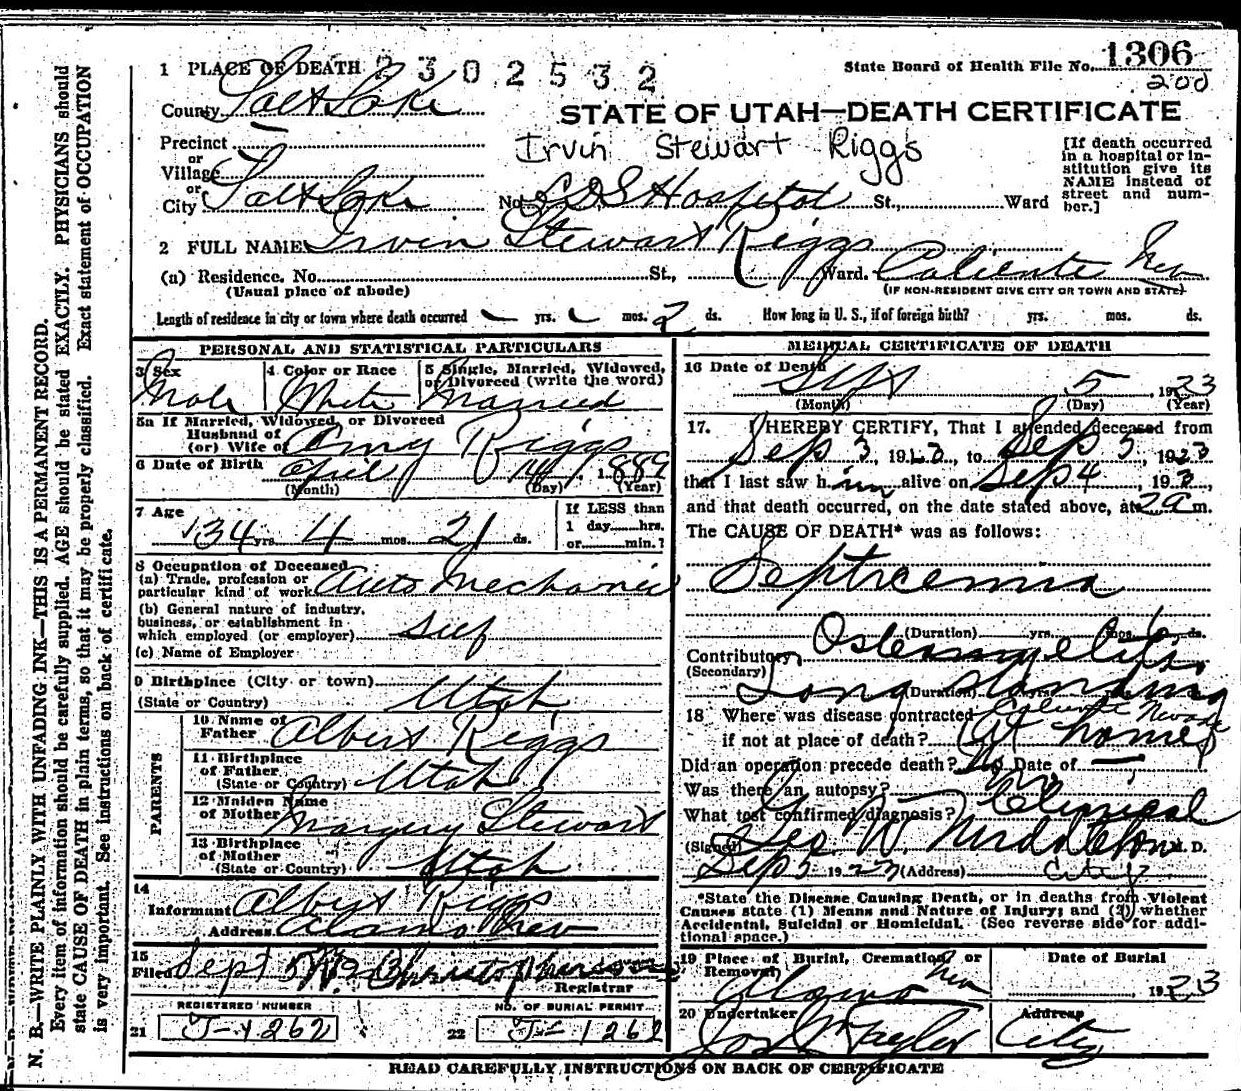 1306
200
1 PLACE OF DEATH 2302532 State Board of Health File No.
County Salt Lake
STATE OF UTAH—DEATH CERTIFICATE
Precinct
Irvin Stewart Riggs
or
Village
City Salt Lake No. L D S Hospital St., Ward
[If death occurred in a hospital or institution give its NAME instead of street and number.]
2 FULL NAME Irvin Stewart Riggs
(a) Residence. No. St., Ward. Caliente Nev
(Usual place of abode) (IF NON-RESIDENT GIVE CITY OR TOWN AND STATE)
Length of residence in city or town where death occurred yrs. mos. 2 ds. How long in U. S., if of foreign birth? yrs. mos. ds.
PERSONAL AND STATISTICAL PARTICULARS
3 Sex Male
4 Color or Race White
5 Single, Married, Widowed, or Divorced (write the word) Married
5a If Married, Widowed, or Divorced
Husband of
(or) Wife of Amy Riggs
6 Date of Birth April 14, 1889
(Month) (Day) (Year)
7 Age 34 yrs. 4 mos. 21 ds.
If LESS than
1 day......hrs.
or......min.?
8 Occupation of Deceased
(a) Trade, profession or
particular kind of work Auto Mechanic
(b) General nature of industry,
business, or establishment in
which employed (or employer) self
(c) Name of Employer
9 Birthplace (City or town)
(State or Country) Utah
PARENTS
10 Name of
Father Albert Riggs
11 Birthplace
of Father
(State or Country) Utah
12 Maiden Name
of Mother Margery Stewart
13 Birthplace
of Mother
(State or Country) Utah
14
Informant Albert Riggs
Address Alamo Nev
15
Filed Sept 5
Registrar
REGISTERED NUMBER
21 J-1262
NO. OF BURIAL PERMIT
22 J-1262
MEDICAL CERTIFICATE OF DEATH
16 Date of Death Sept 5, 1923
(Month) (Day) (Year)
17. I HEREBY CERTIFY, That I attended deceased from
Sep 3, 1923, to Sep 5, 1923
that I last saw him alive on Sep 4, 193,
and that death occurred, on the date stated above, at 2 a m.
The CAUSE OF DEATH* was as follows:
Septicemia
(Duration) yrs. mos. 6 ds.
Contributory Osteomyelitis
(Secondary)
Long standing
(Duration)
18 Where was disease contracted Caliente Nevada
if not at place of death? (At home)
Did an operation precede death? No Date of —
Was there an autopsy? No
What test confirmed diagnosis? Clinical
(Signed) Geo. W. Middleton M. D.
Sep 5 1923 (Address) City
*State the Disease Causing Death, or in deaths from Violent
Causes state (1) Means and Nature of Injury; and (2) whether
Accidental, Suicidal or Homicidal. (See reverse side for additional space.)
19 Place of Burial, Cremation, or
Removal
Alamo Nev
Date of Burial
1923
20 Undertaker
Jos Wm Taylor
Address
City
READ CAREFULLY INSTRUCTIONS ON BACK OF CERTIFICATE
N. B.—WRITE PLAINLY WITH UNFADING INK—THIS IS A PERMANENT RECORD.
Every item of information should be carefully supplied. AGE should be stated EXACTLY. PHYSICIANS should
state CAUSE OF DEATH in plain terms, so that it may be properly classified. Exact statement of OCCUPATION
is very important. See instructions on back of certificate.